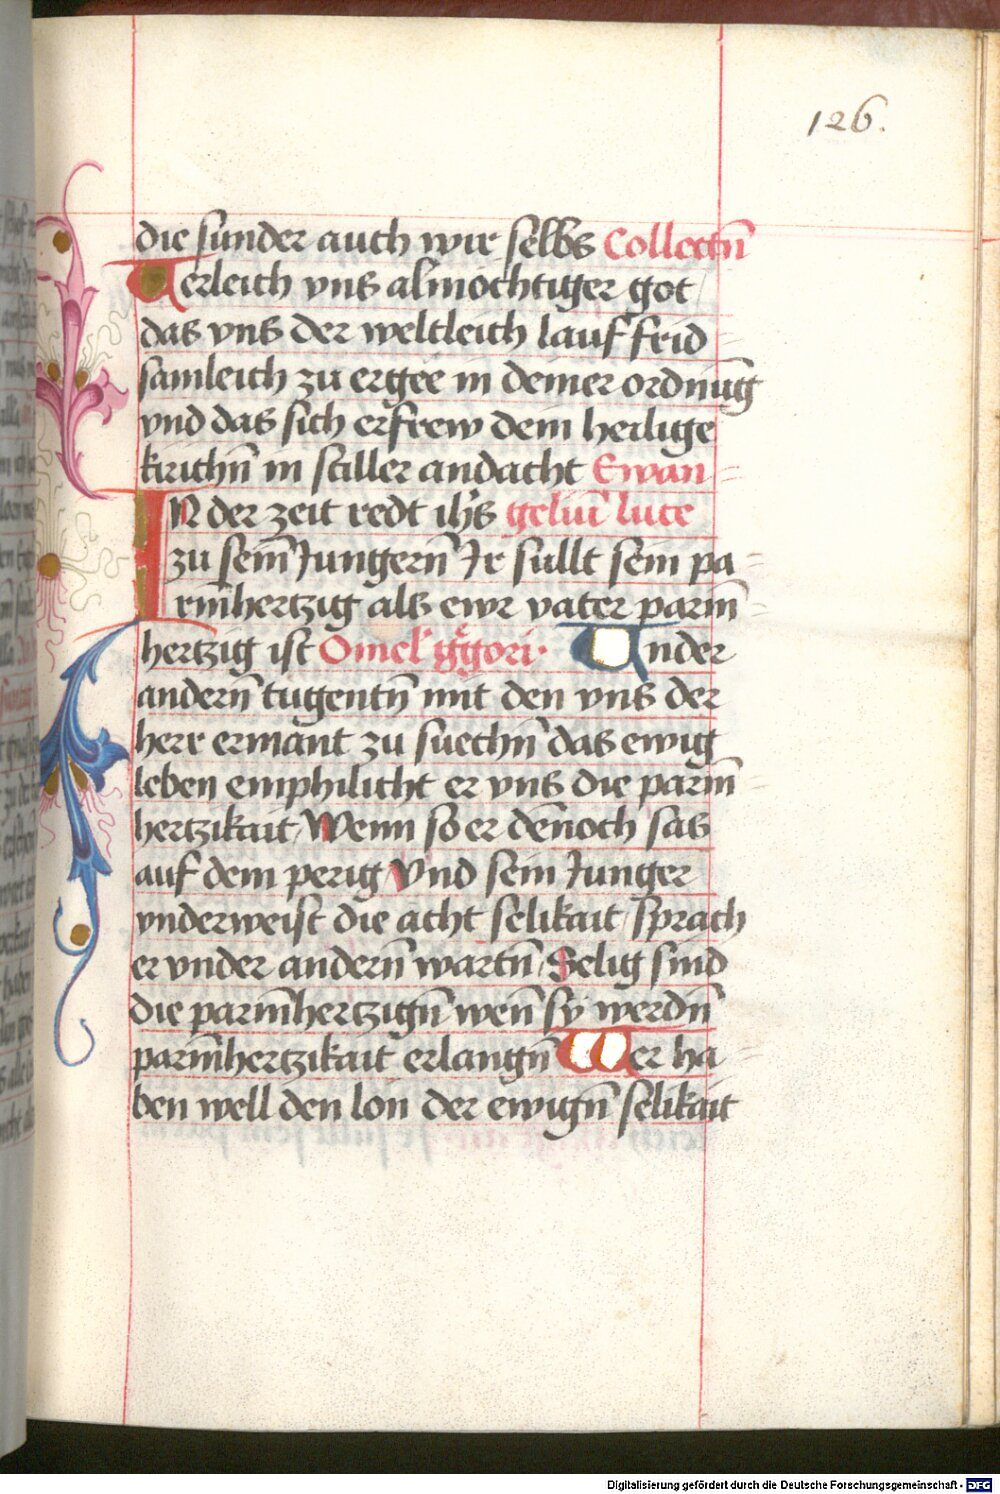 126.
die sunder auch wir selbs Collectn̄
Verleich vns almochtiger got
das vns der weltleich lauf frid
samleich zu ergee in deiner ordnūg
vnd das sich erfrew dein heilige
kirichn̄ in stiller andacht Ewan=
IN der zeit redt ih̄s geliū luce
zu sein̄ Jungern̄ Ir sullt sein pa=
rm̄hertzig als ewr vater parm̄=
hertzig ist Omel' g̊gori· Under
andern̄ tugentn̄ mit den vns der
herr ermant zu suechn̄ das ewig
leben emphilicht er vns die parm̄=
hertzikait / Wenn so er dēnoch sas
auf dem perig Vnd sein Junger
vnderweist die acht selikait / sprach
er vnder andern̄ wartn̄ / Selig sind
die parm̄hertzign̄ wen̄ sy werdn̄
parm̄hertzikait erlangn̄ Wer ha=
ben well den lon der ewign̄ selikait
Digitalisierung gefördert durch die Deutsche Forschungsgemeinschaft - DFG